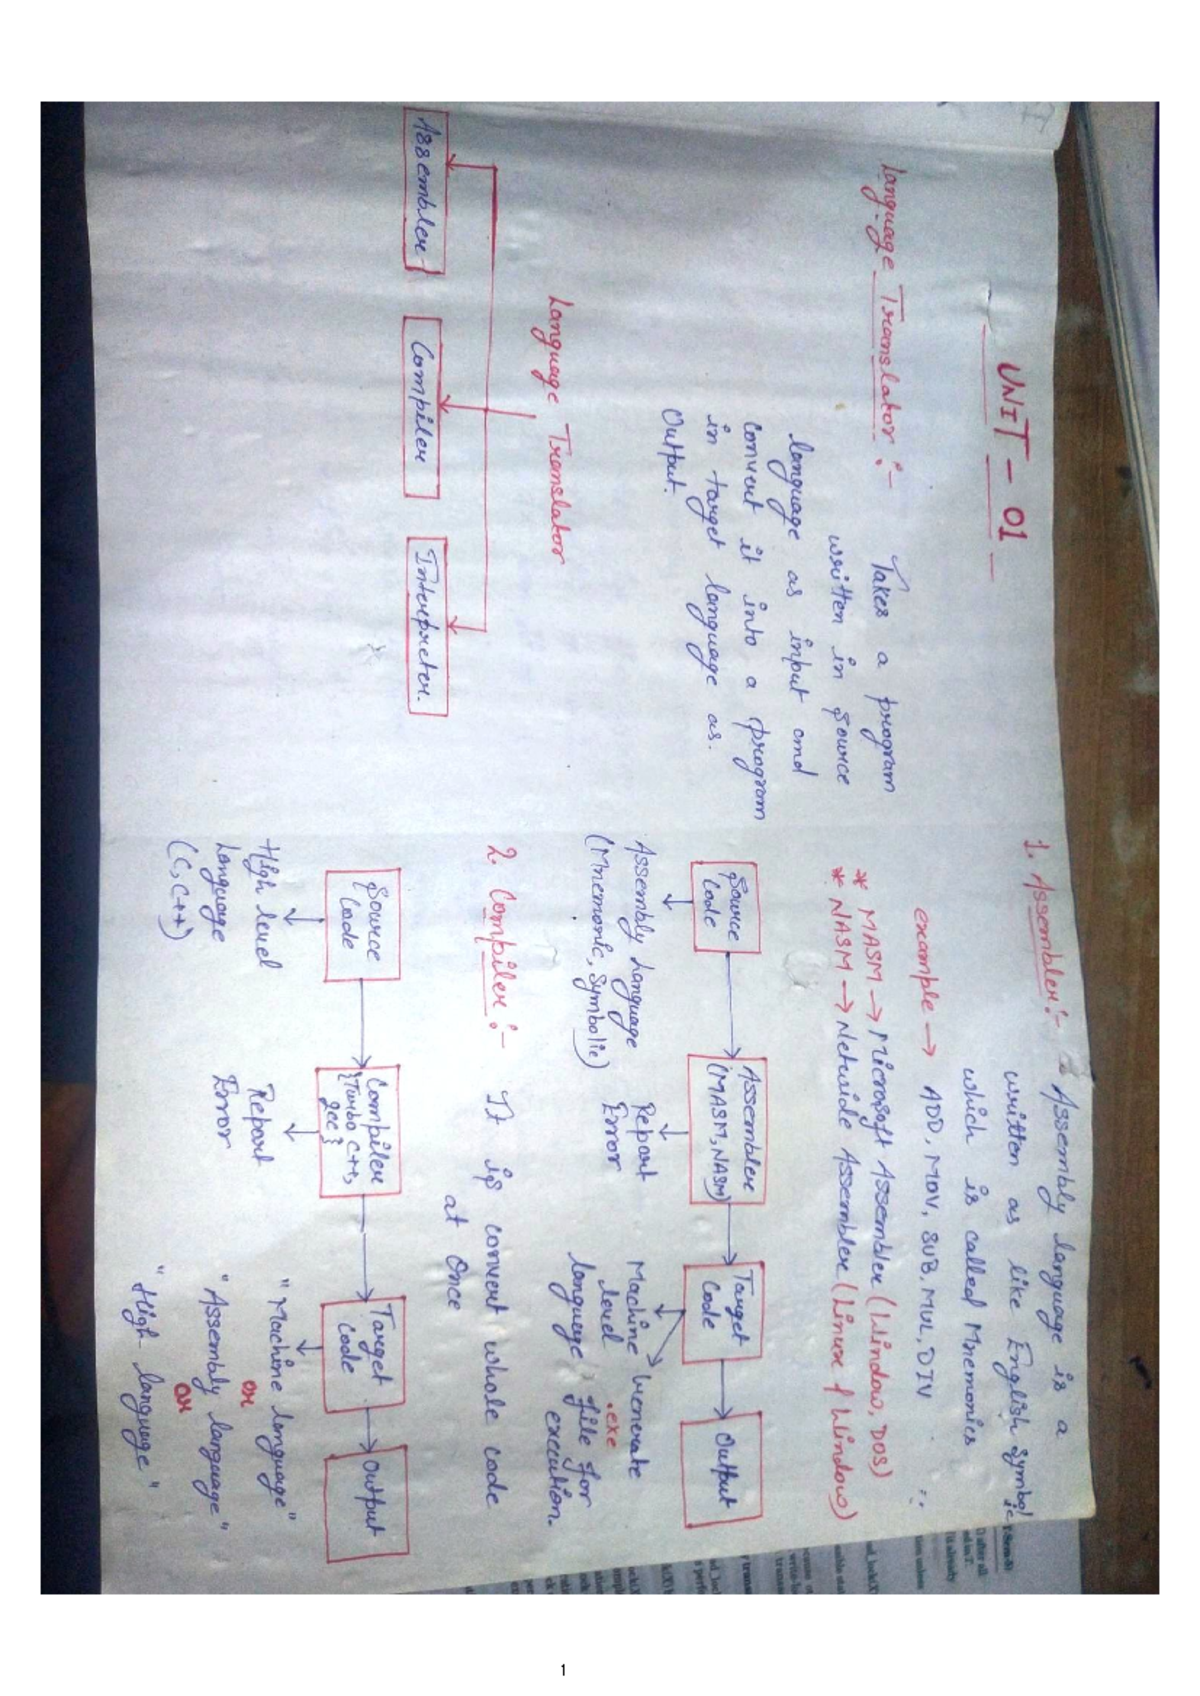 UNIT - 01
Language Translator :-
Takes a program
written in Source
language as input and
convert it into a program
in target language as.
Output.
Language Translator
Assembler
Compiler
Interpreter.
1. Assembler :- Assembly language is a
written as like English Symbolic
which is called Mnemonics
example → ADD, MOV, SUB, MUL, DIV
* MASM → Microsoft Assembler (Window, DOS)
* NASM → Netwide Assembler (Linux & Window)
Source
Code
Assembler
(MASM, NASM)
Target
Code
Output
Assembly Language
(Mnemonic, Symbolic)
Report
Error
Machine
level
language
Generate
.exe
file for
execution.
2. Compiler :- It is convert whole code
at Once
Source
Code
Compiler
{Turbo C++,
gcc}
Target
Code
Output
High level
Language
(C, C++)
Report
Error
"Machine language"
OR
"Assembly language"
OR
"High language"
1